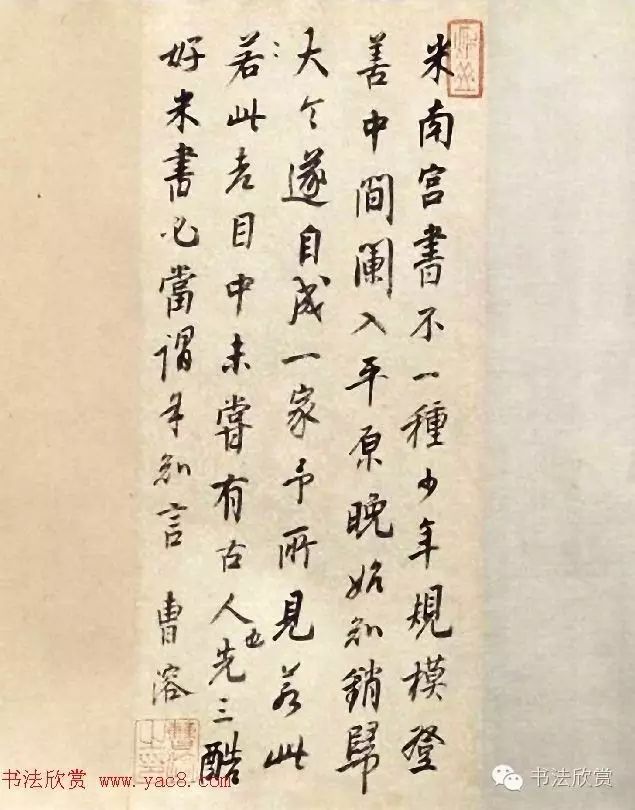 米南宮書不一種少年規模登
善中間闌入平原晚始知銷歸
大令遂自成一家予所見若此
若此老目中未嘗有古人也先三酷
好米書必當謂知言 曹溶
书法欣赏 www.yac8.com
书法欣赏